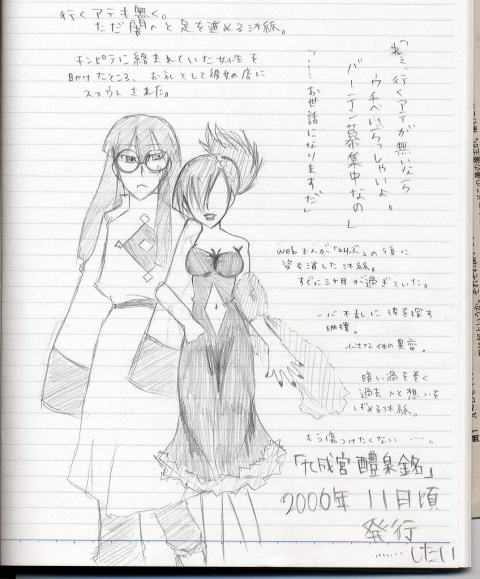 行くアテも無く。
ただ闇へと足を進める沐絲。
チンピラに絡まれていた女性を
助けたところ、お礼として彼女の店に
スカウトされた。
「ねぇ、行くアテが無いなら
ウチへいらっしゃいよ。
バーテンさん募集中なの」
「……お世話になりますだ」
webまんが「叫ぶ」の後に
姿を消した沐絲。
すでに三ケ月が過ぎていた。
一心不乱に彼を探す
珊璞。
小さな体の異変。
暗い渦を巻く
過去への想いを
沐絲。
もう傷つけたくない……。
「九成宮醴泉銘」
2006年 11月頃
発行
……したい